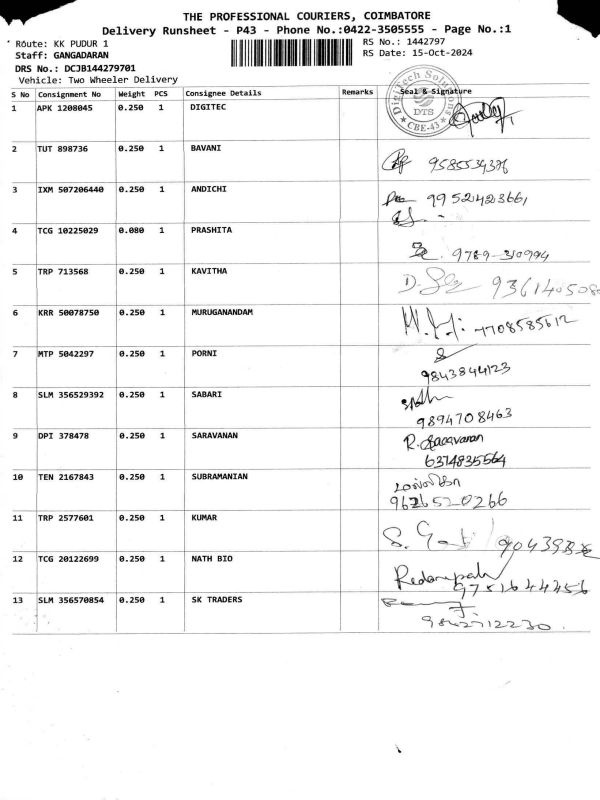 THE PROFESSIONAL COURIERS, COIMBATORE
Delivery Runsheet - P43 - Phone No.:0422-3505555 - Page No.:1
Route: KK PUDUR 1 RS No.: 1442797
Staff: GANGADARAN RS Date: 15-Oct-2024
DRS No.: DCJB144279701
Vehicle: Two Wheeler Delivery
S No Consignment No Weight PCS Consignee Details Remarks Seal & Signature
1 APK 1208045 0.250 1 DIGITEC
Digitech Solutions
DTS
★ CBE-43 ★
2 TUT 898736 0.250 1 BAVANI
3 IXM 507206440 0.250 1 ANDICHI 9952423661
4 TCG 10225029 0.080 1 PRASHITA
5 TRP 713568 0.250 1 KAVITHA
6 KRR 50078750 0.250 1 MURUGANANDAM
7 MTP 5042297 0.250 1 PORNI
9843844123
8 SLM 356529392 0.250 1 SABARI
9894708463
9 DPI 378478 0.250 1 SARAVANAN R. Saravanan
6374835564
10 TEN 2167843 0.250 1 SUBRAMANIAN
9626520266
11 TRP 2577601 0.250 1 KUMAR
12 TCG 20122699 0.250 1 NATH BIO
9751644456
13 SLM 356570854 0.250 1 SK TRADERS
9842712230